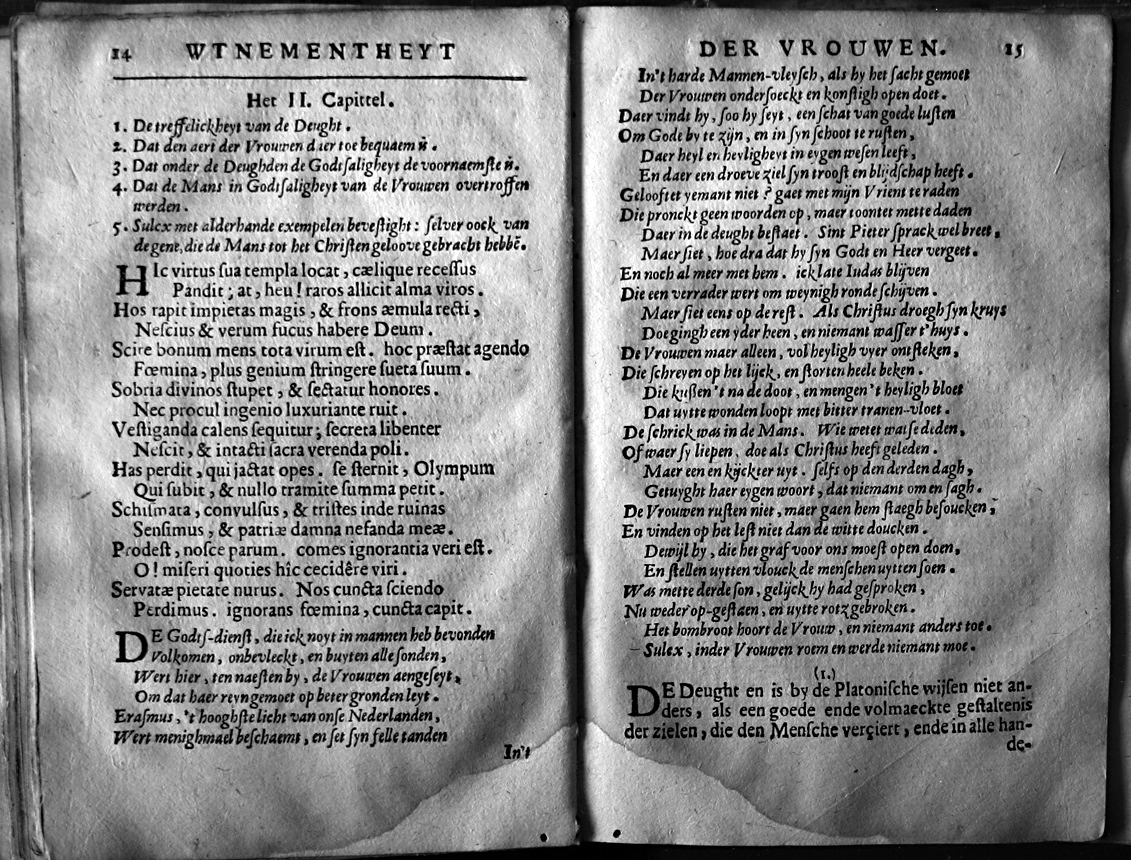 14 WTNEMENTHEYT
Het II. Capittel.
1. De treffelickheyt van de Deught.
2. Dat den aert der Vrouwen daer toe bequaem
3. Dat onder de Deughden de Godtsaligheyt de voornaemste
4. Dat de Mans in Godtsaligheyt van de Vrouwen overtroffen
werden.
5. Sulcx met alderhande exempelen bevestight: selver oock van
de gene, die de Mans tot het Christen geloove gebracht hebbē.
HIc virtus sua templa locat, cælique recessus
Pandit; at, heu! raros allicit alma viros.
Hos rapit impietas magis, & frons æmula recti,
Nescius & verum fucus habere Deum.
Scire bonum mens tota virum est. hoc præstat agendo
Fœmina, plus genium stringere sueta suum.
Sobria divinos stupet, & sectatur honores.
Nec procul ingenio luxuriante ruit.
Vestiganda calens sequitur; secreta libenter
Nescit, & intacti sacra verenda poli.
Has perdit, qui jactat opes. se sternit, Olympum
Qui subit, & nullo tramite summa petit.
Schismata, convulsus, & tristes inde ruinas
Sensimus, & patriæ damna nefanda meæ.
Prodest, nosce parum. comes ignorantia veri est.
O! miseri quoties hîc cecidêre viri.
Servatæ pietate nurus. Nos cuncta sciendo
Perdimus. ignorans fœmina, cuncta capit.
DE Godts-dienst, die ick noyt in mannen heb bevonden
Volkomen, onbevleckt, en buyten alle sonden,
Wert hier, ten naesten by, de Vrouwen aengeseyt,
Om dat haer reyn gemoet op beter gronden leyt.
Erasmus, 't hooghste licht van onse Nederlanden,
Wert menighmael beschaemt, en set syn felle tanden
In't
DER VROUWEN. 15
In't harde Mannen-vleysch, als hy het sacht gemoet
Der Vrouwen ondersoeckt en konstigh open doet.
Daer vindt hy, soo hy seyt, een schat van goede lusten
Om Gode by te zijn, en in syn schoot te rusten,
Daer heyl en heyligheyt in eygen wesen leeft,
En daer een droeve ziel syn troost en blijdschap heeft.
Gelooftet yemant niet? gaet met mijn Vrient te raden
Die pronckt geen woorden op, maer toontet mette daden
Daer in de deught bestaet. Sint Pieter sprack wel breet,
Maer siet, hoe dra dat hy syn Godt en Heer vergeet.
En noch al meer met hem. ick late Iudas blijven
Die een verrader wert om weynigh ronde schijven.
Maer siet eens op de rest. Als Christus droegh syn kruys
Doe gingh een yder heen, en niemant wasser t'huys.
De Vrouwen maer alleen, vol heyligh vyer ontsteken,
Die schreyen op het lijck, en storten heele beken.
Die kussen't na de doot, en mengen't heyligh bloet
Dat uytte wonden loopt met bitter tranen-vloet.
De schrick was in de Mans. Wie wetet wat se deden,
Of waer sy liepen, doe als Christus heeft geleden.
Maer een en kijckter uyt. selfs op den derden dagh,
Getuyght haer eygen woort, dat niemant om en sagh.
De Vrouwen rusten niet, maer gaen hem staegh besoucken,
En vinden op het lest niet dan de witte doucken.
Dewijl hy, die het graf voor ons moest open doen,
En stellen uytten vlouck de menschen uytten soen.
Was mette derde son, gelijck hy had gesproken,
Nu weder op-gestaen, en uytte rotz gebroken.
Het bombroot hoort de Vrouw, en niemant anders toe.
Sulcx, inder Vrouwen roem en werde niemant moe.
(1.)
DE Deught en is by de Platonische wijsen niet an-
ders, als een goede ende volmaeckte gestaltenis
der zielen, die den Mensche verçiert, ende in alle han-
de-